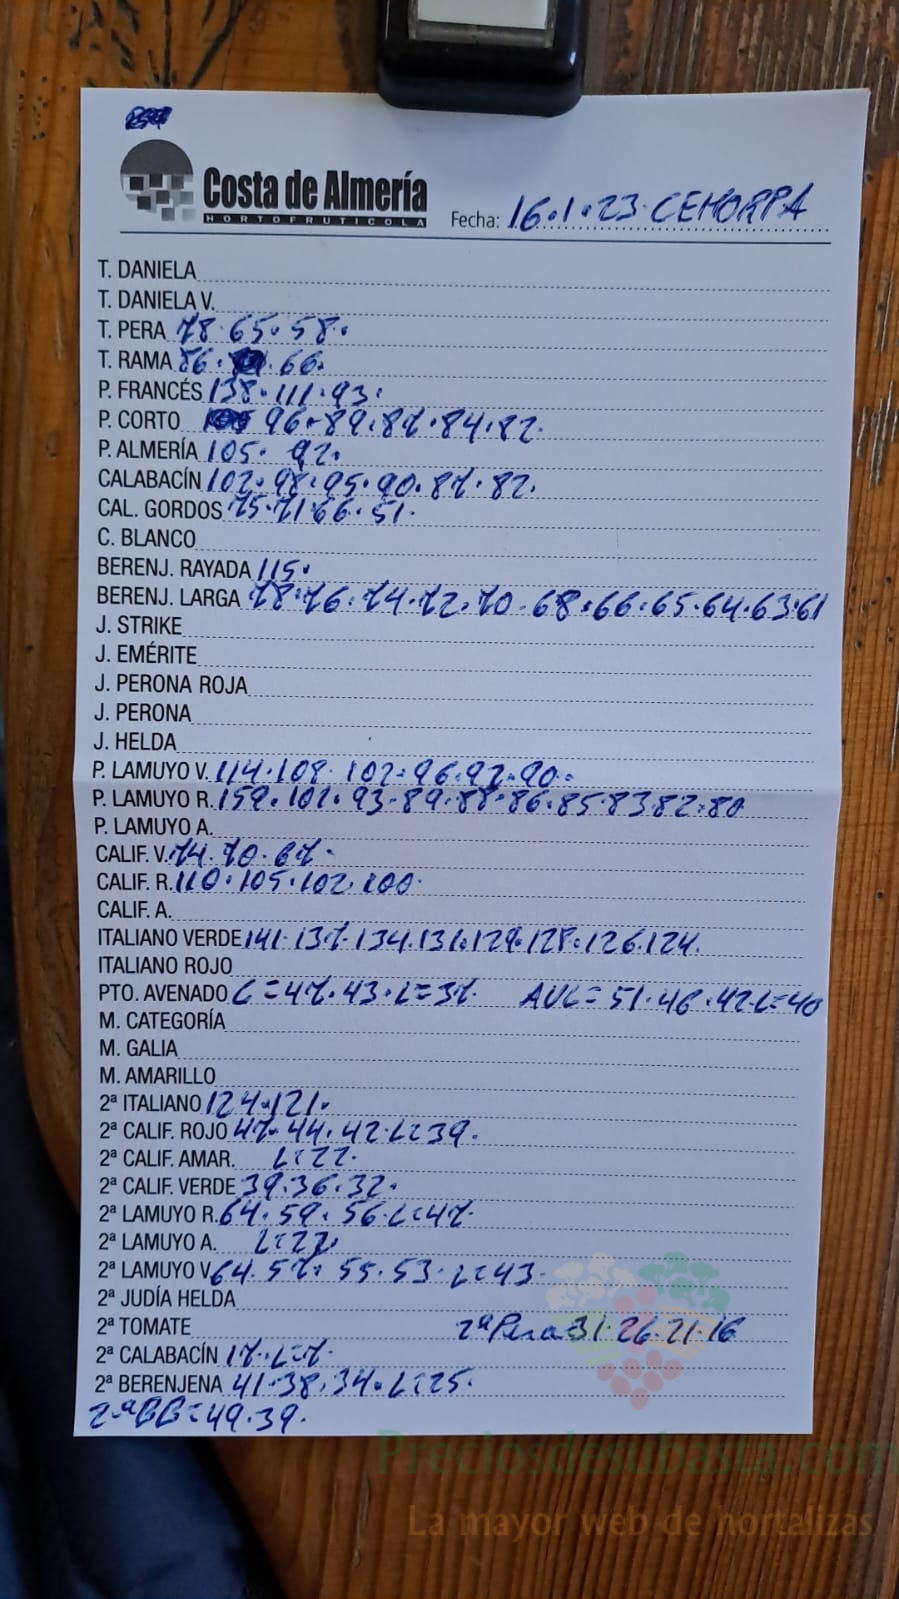 Costa de Almería
HORTOFRUTICOLA
Fecha: 16.1.23 CEHORPA
T. DANIELA
T. DANIELA V.
T. PERA 78.65.58.
T. RAMA 86. 66.
P. FRANCÉS 138.111.93.
P. CORTO 96.89.87.84.82.
P. ALMERÍA 105. 92.
CALABACÍN 102.98.95.90.87.82.
CAL. GORDOS 75.71.66.51.
C. BLANCO
BERENJ. RAYADA 115.
BERENJ. LARGA 78.76.74.72.70.68.66.65.64.63.61
J. STRIKE
J. EMÉRITE
J. PERONA ROJA
J. PERONA
J. HELDA
P. LAMUYO V. 114.108.102.96.92.90.
P. LAMUYO R. 159.102.93.89.88.86.85.83.82.80
P. LAMUYO A.
CALIF. V. 74.70.67.
CALIF. R. 110.105.102.100.
CALIF. A.
ITALIANO VERDE 141.137.134.131.129.128.126.124.
ITALIANO ROJO
PTO. AVENADO C=47.43.L=37. AVL=51.46.42.L=40
M. CATEGORÍA
M. GALIA
M. AMARILLO
2ª ITALIANO 124.121.
2ª CALIF. ROJO 47.44.42.L=39.
2ª CALIF. AMAR. L=22.
2ª CALIF. VERDE 39.36.32.
2ª LAMUYO R. 64.59.56.L=47.
2ª LAMUYO A. L=22.
2ª LAMUYO V. 64.57.55.53.L=43.
2ª JUDÍA HELDA
2ª TOMATE 2ªPera=31.26.21.16
2ª CALABACÍN 17.L=7.
2ª BERENJENA 41.38.34.L=25.
2ªBB=49.39.
Preciosdesubasta.com
La mayor web de hortalizas